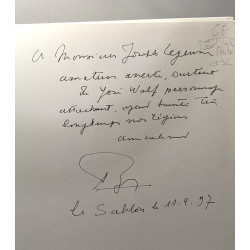 A Monsieur Joseph
amateur averti, surtout
de Yosi Wolf personnage
attachant, ayant hanté très
longtemps nos régions
amicalement
le Sablon le 11.9.97